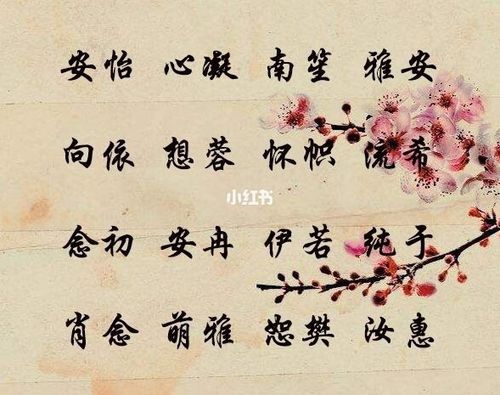 安怡 心凝 南笙 雅安
向依 想蓉 怀帜 流希
小红书
念初 安冉 伊若 纯于
肖念 萌雅 恕樊 汝惠